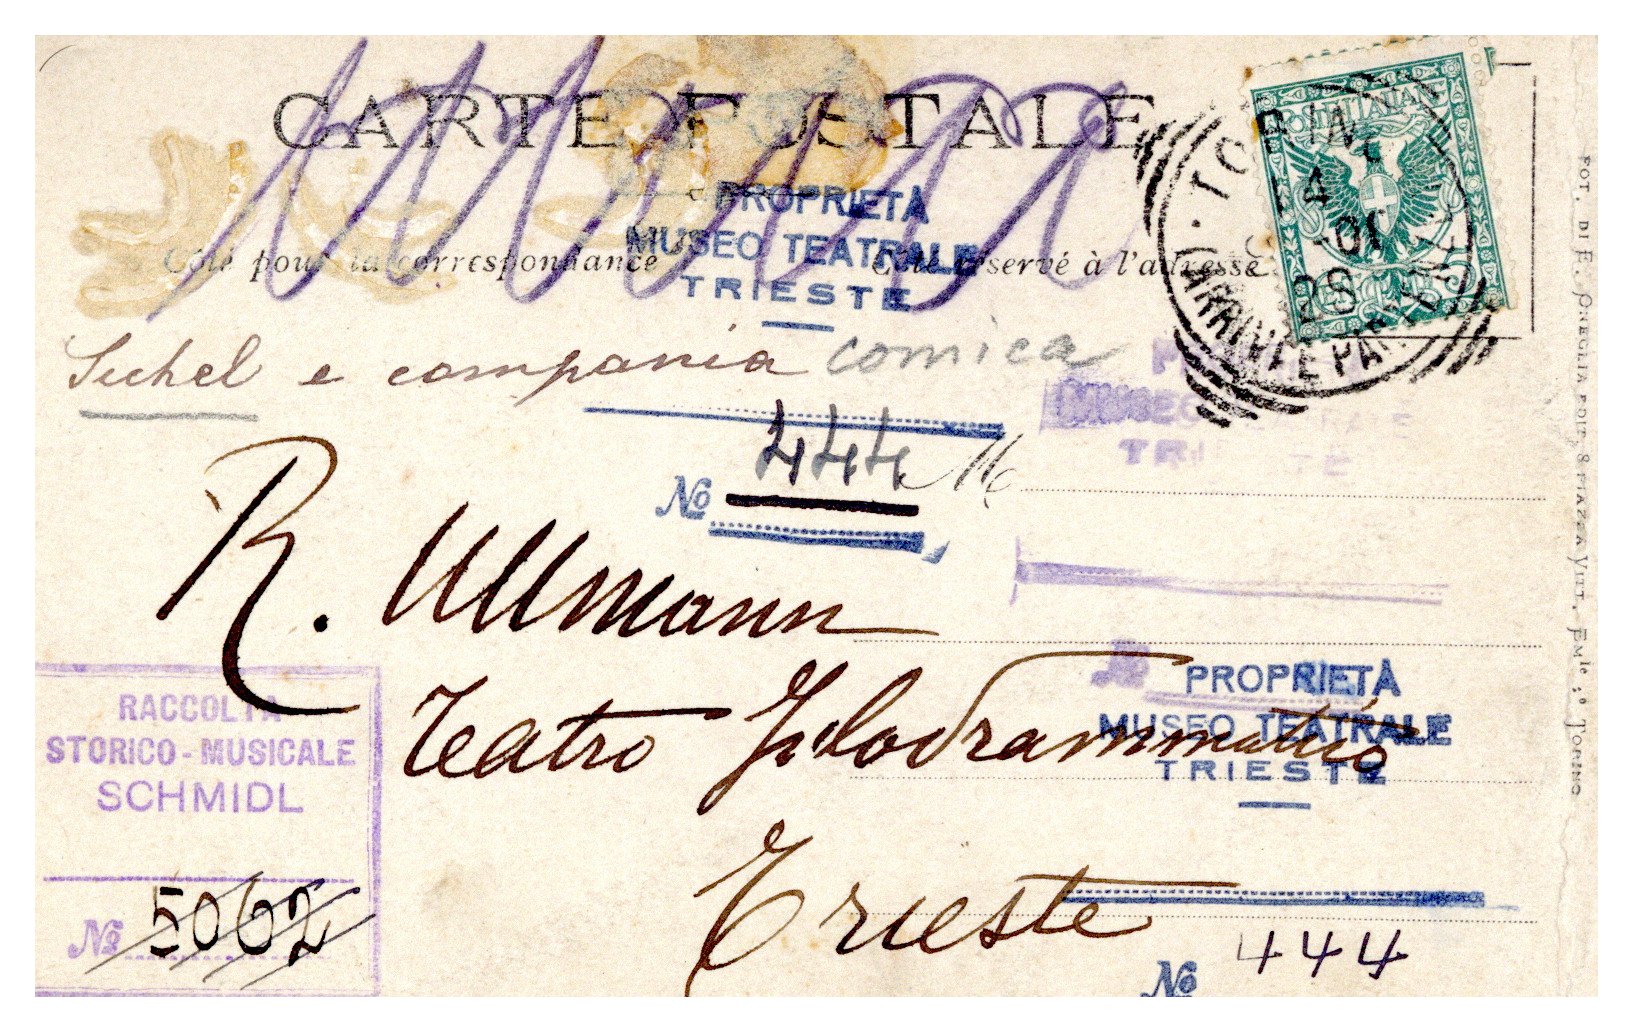 CARTE POSTALE
POSTE ITALIANE
TORINO
4-01
2S
ARRIVI E PARTENZE
PROPRIETÀ
MUSEO TEATRALE
TRIESTE
Côté pour la correspondance
Côté réservé à l'adresse
Sichel e compania comica
MUSEO
TRIESTE
No 444
M
R. Ullmann
PROPRIETÀ
MUSEO TEATRALE
TRIESTE
Teatro Filodrammatico
RACCOLTA
STORICO-MUSICALE
SCHMIDL
No 5062
Trieste
No 444
FOT. DI E. ONEGLIA EDIT. 8 PIAZZA VITT. EMle 1º TORINO